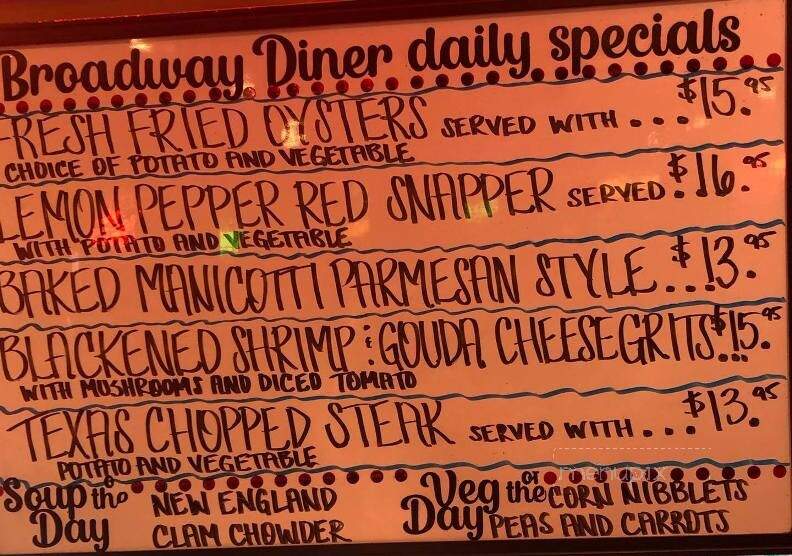 Broadway Diner daily specials
FRESH FRIED OYSTERS SERVED WITH... $15.95
CHOICE OF POTATO AND VEGETABLE
LEMON PEPPER RED SNAPPER SERVED: $16.95
WITH POTATO AND VEGETABLE
BAKED MANICOTTI PARMESAN STYLE... $13.95
BLACKENED SHRIMP & GOUDA CHEESE GRITS... $15.95
WITH MUSHROOMS AND DICED TOMATO
TEXAS CHOPPED STEAK SERVED WITH... $13.95
POTATO AND VEGETABLE
Soup of the Day
NEW ENGLAND
CLAM CHOWDER
Veg of the Day
CORN NIBBLETS
PEAS AND CARROTS
menupix